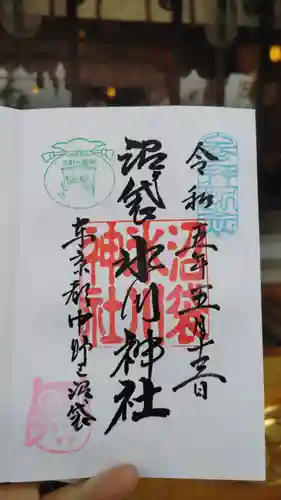 令和五年五月十三日
沼袋氷川神社
東京都中野区沼袋
沼袋
氷川
神社